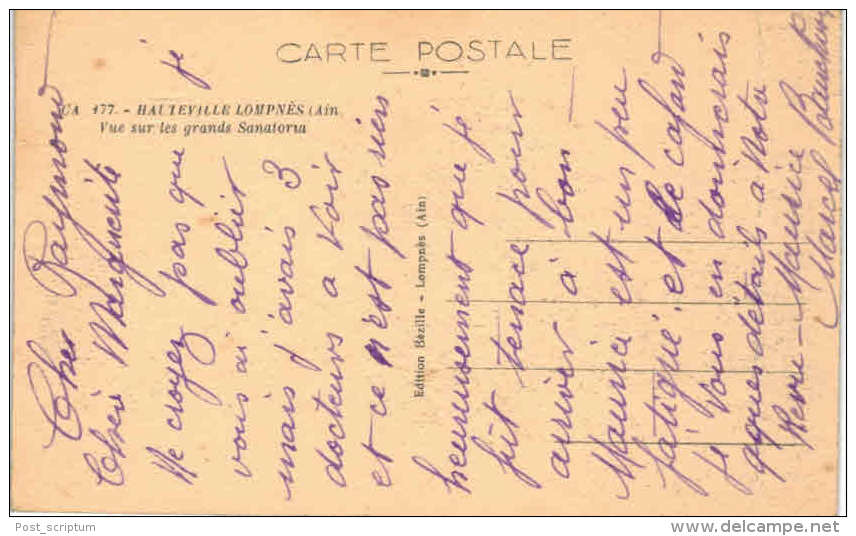 CARTE POSTALE
CA 177. - HAUTEVILLE LOMPNÈS (Ain
Vue sur les grands Sanatoria
Edition Bézille - Lompnès (Ain)
Cher Raymond
Chère Marguerite
Ne croyez pas que je
vous ai oublier
mais j'avais 3
docteurs a voir
et ce n'est pas rien
heureusement que jé
fût tenace pour
arriver à bon
Maurice est un peu
fatigué, et le cafard
je vous en donnerais
qques détails a Notre
Revu - Maurice
Marcel
Post_scriptum
delcampe.net